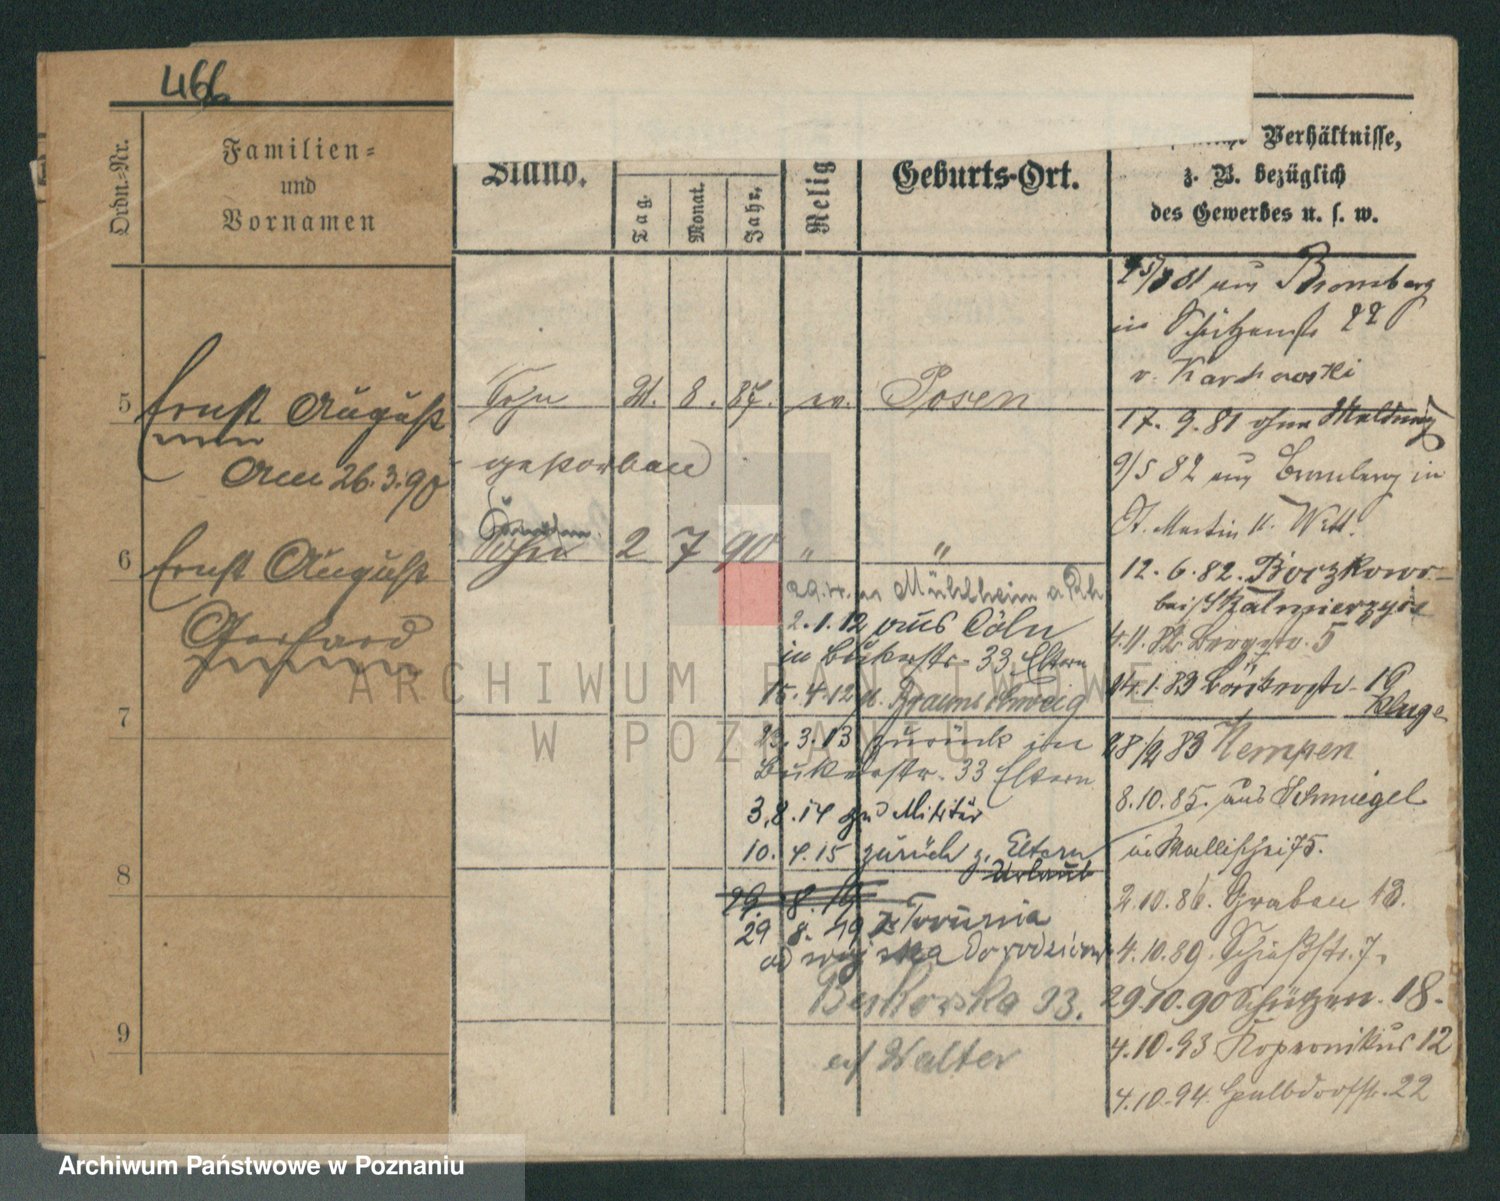 466
Ordn.-Nr.
Familien-
und
Vornamen
Stand.
Tag.
Monat.
Jahr.
Relig
Geburts-Ort.
Verhältnisse,
z. B. bezüglich
des Gewerbes u. s. w.
5 Ernst August Sohn 21. 8. 87. ev. Posen
am 26.3.90 gestorben
6 Ernst August Sohn 2 7 90 " "
Gerhard
Mühlheim a Rh
2.1.12 aus Cöln
in Bukerstr. 33 Eltern
15.4.12 n. Braunschweig
7
23.3.13 zurück in
Bukerstr. 33 Eltern
3.8.14 zum Militär
10.4.15 zurück z. Eltern
Urlaub
8
29. 8. 19
29 8. 19 z Torunia
od wojska do rodziców
Bukowska 33.
9
ev Walter
25/8 81 aus Bromberg
in Schützenstr 22
v. Karchowski
17.9.81 ohne Meldung
9/5 82 aus Bromberg in
St. Martin 11. Witt.
12.6.82. Borzkowo-
bei Skalmierzyce
4.11.82 Bergstr. 5
14.1.83 Bäckerstr. 19
Kluge
28/2 83 Kempen
8.10.85. aus Schmiegel
in Wallischei 75.
2.10.86. Graben 13.
4.10.89. Schießstr. 7.
29.10.90 Schützen. 18.
4.10.93 Kopernikus 12
4.10.94. Halbdorfstr. 22
ARCHIWUM PAŃSTWOWE
W POZNANIU
Archiwum Państwowe w Poznaniu